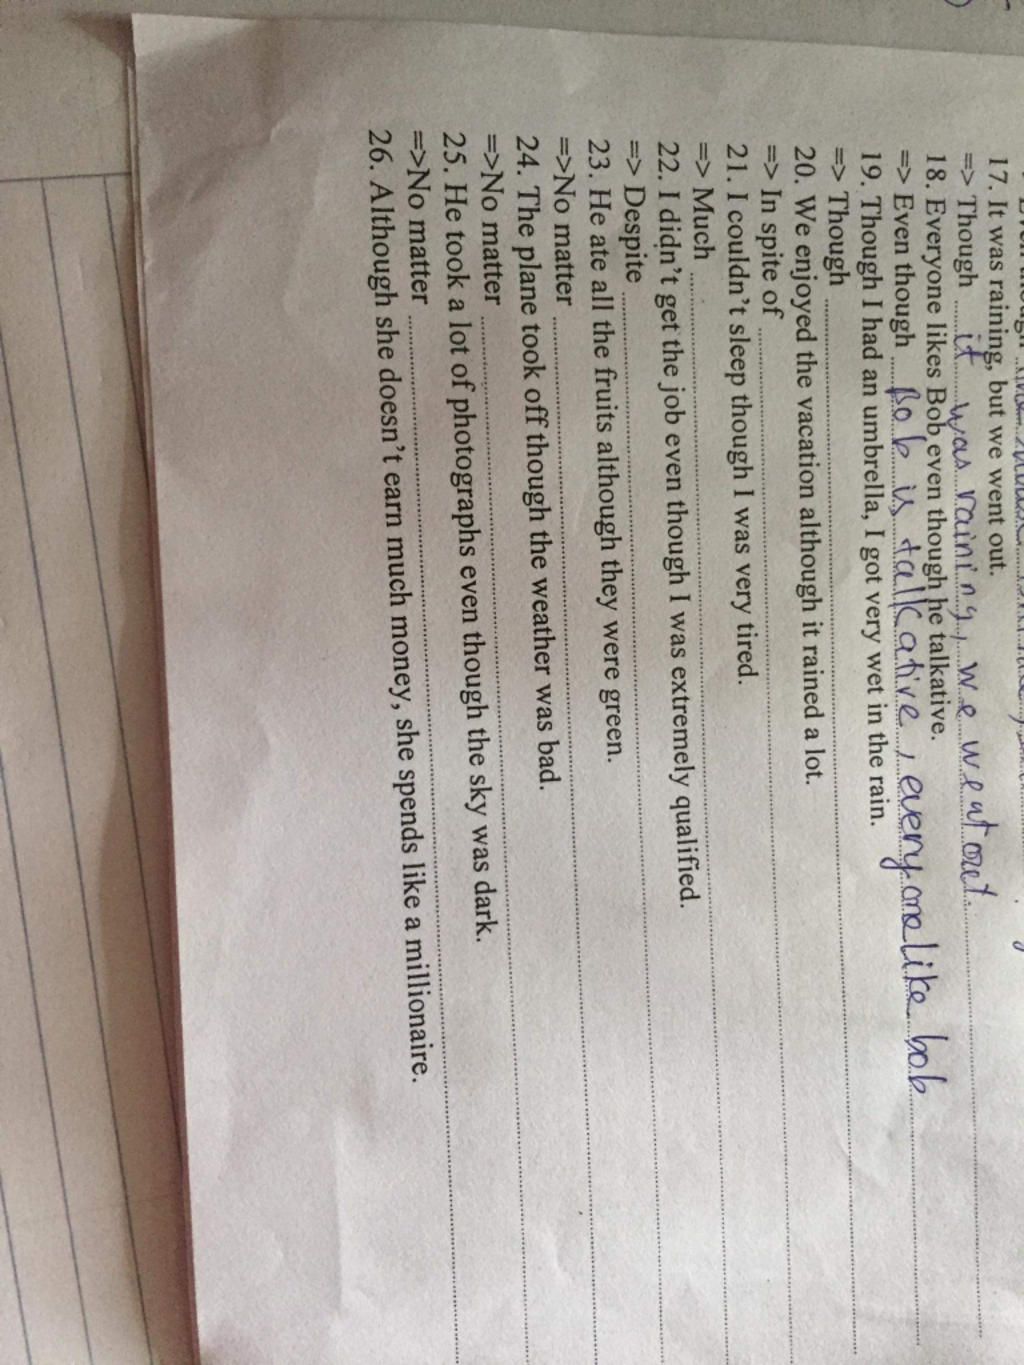 17. It was raining, but we went out.
=> Though it was raining, we went out.
18. Everyone likes Bob even though he talkative.
=> Even though Bob is talkative, everyone like bob
19. Though I had an umbrella, I got very wet in the rain.
=> Though
20. We enjoyed the vacation although it rained a lot.
=> In spite of
21. I couldn't sleep though I was very tired.
=> Much
22. I didn't get the job even though I was extremely qualified.
=> Despite
23. He ate all the fruits although they were green.
=>No matter
24. The plane took off though the weather was bad.
=>No matter
25. He took a lot of photographs even though the sky was dark.
=>No matter
26. Although she doesn't earn much money, she spends like a millionaire.